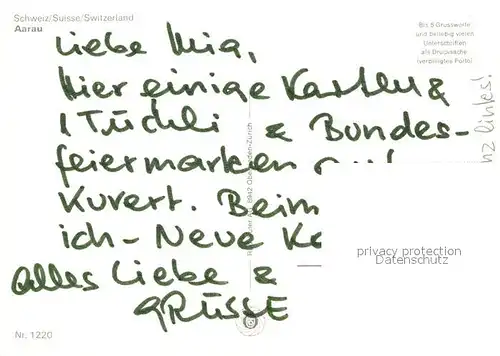 Schweiz/Suisse/Switzerland
Aarau
Bis 5 Grussworte
und beliebig vielen
Unterschriften
als Drucksache
(verbilligtes Porto)
Liebe Mia,
Hier einige Karten &
1 Tüchli & Bundes-
feiermarken
Kuvert. Beim
ich - Neue
Alles Liebe &
GRÜSSE
links!
8942 Oberrieden-Zürich
privacy protection
Datenschutz
Nr. 1220